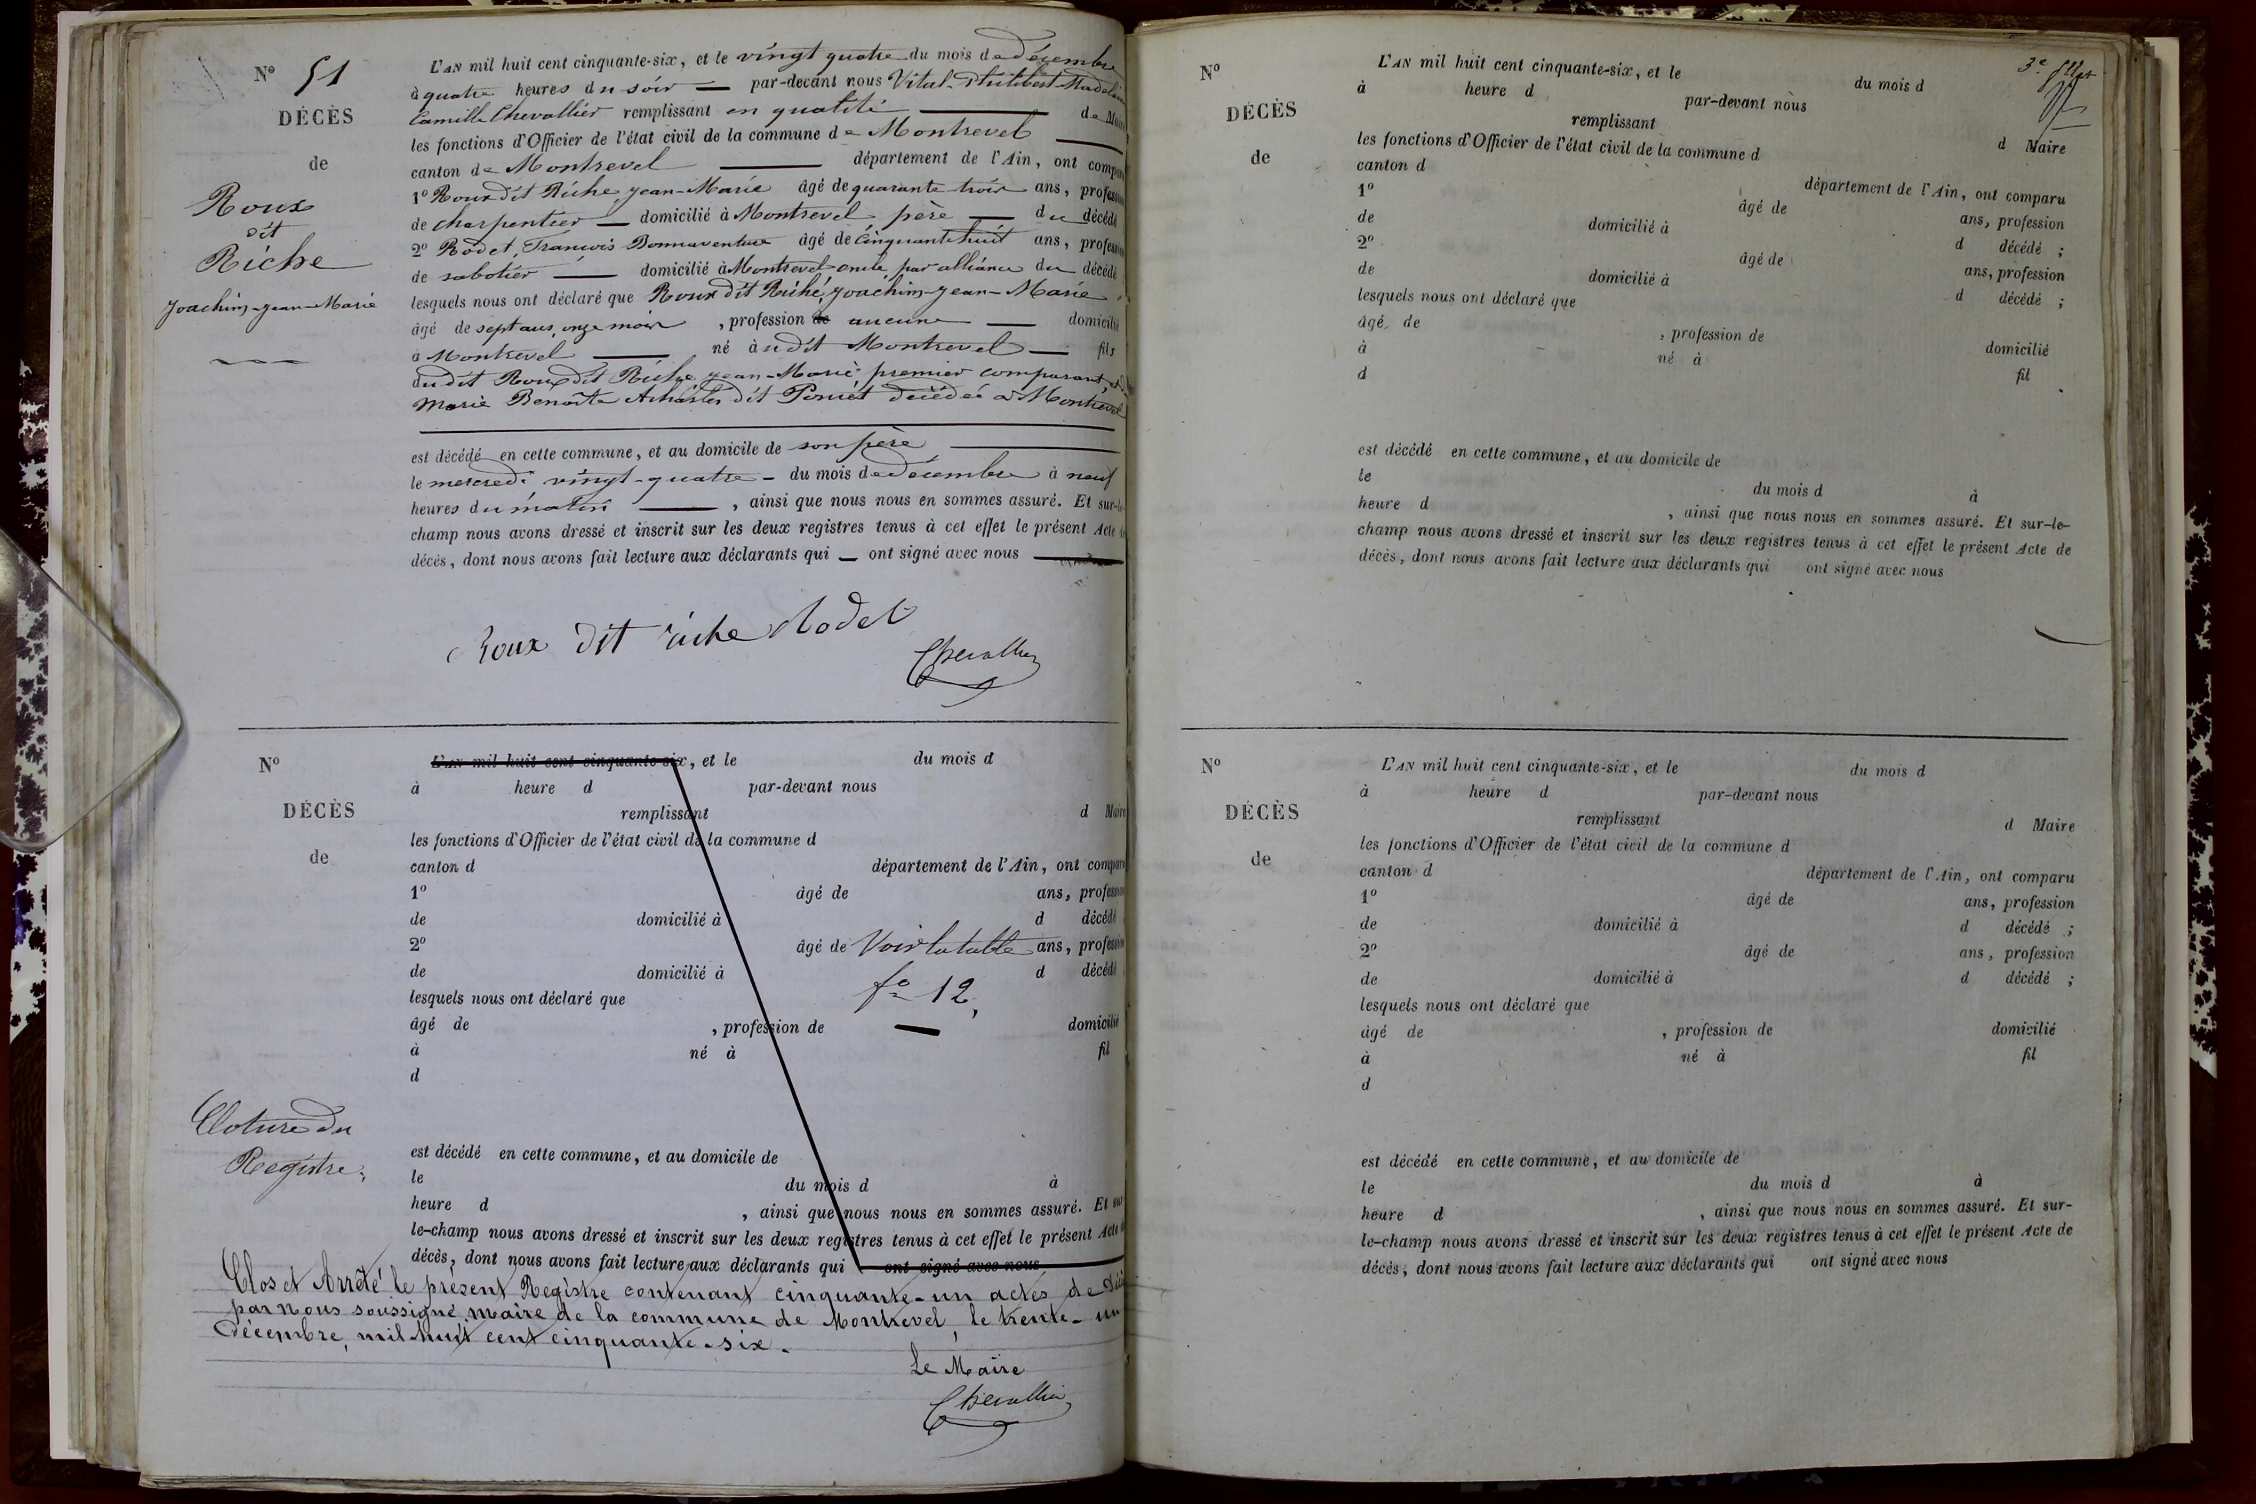 N° 51
DÉCÈS
de
Roux
dit
Riche
Joachim-Jean-Marie
L'AN mil huit cent cinquante-six, et le vingt quatre du mois de décembre
à quatre heures du soir — par-devant nous Vital-Philibert-Madelain
Camille Chevallier remplissant en qualité — de Maire
les fonctions d'Officier de l'état civil de la commune de Montrevel —
canton de Montrevel — département de l'Ain, ont comparu
1° Roux dit Riche, Jean-Marie âgé de quarante trois ans, profession
de charpentier — domicilié à Montrevel père — du décédé
2° Rodet, François Bonnaventure âgé de cinquante huit ans, profession
de sabotier — domicilié à Montrevel oncle par alliance du décédé
lesquels nous ont déclaré que Roux dit Riche, Joachim-Jean-Marie
âgé de sept ans, onze mois , profession de aucune — domicilié
à Montrevel — né àudit Montrevel — fils
dudit Roux dit Riche, Jean-Marie, premier comparant, et de
Marie Benoîte dit Poncet décédée à Montrevel
est décédé en cette commune, et au domicile de son père
le mercredi vingt-quatre - du mois de décembre à neuf
heures du matin — , ainsi que nous nous en sommes assuré. Et sur-le-
champ nous avons dressé et inscrit sur les deux registres tenus à cet effet le présent Acte de
décès, dont nous avons fait lecture aux déclarants qui — ont signé avec nous —
Roux dit riche Rodet
Chevallier
N°
DÉCÈS
de
L'AN mil huit cent cinquante-six, et le du mois d
à heure d par-devant nous
remplissant d Maire
les fonctions d'Officier de l'état civil de la commune d
canton d département de l'Ain, ont comparu
1° âgé de ans, profession
de domicilié à d décédé
2° âgé de Voir la table ans, profession
de domicilié à d décédé
f° 12,
lesquels nous ont déclaré que
âgé de , profession de — domicilié
à né à fil
d
Cloture du
Registre;
est décédé en cette commune, et au domicile de
le du mois d à
heure d , ainsi que nous nous en sommes assuré. Et sur
le-champ nous avons dressé et inscrit sur les deux registres tenus à cet effet le présent Acte de
décès, dont nous avons fait lecture aux déclarants qui ont signé avec nous
Clos et Arrêté le présent Registre contenant cinquante-un actes de Décès
par nous soussigné maire de la commune de Montrevel, le trente-un
décembre, mil huit cent cinquante-six.
Le Maire
Chevallier
3e fllet
N°
DÉCÈS
de
L'AN mil huit cent cinquante-six, et le du mois d
à heure d par-devant nous
remplissant d Maire
les fonctions d'Officier de l'état civil de la commune d
canton d département de l'Ain, ont comparu
1° âgé de ans, profession
de domicilié à d décédé ;
2° âgé de ans, profession
de domicilié à d décédé ;
lesquels nous ont déclaré que
âgé de , profession de domicilié
à né à fil
d
est décédé en cette commune, et au domicile de
le du mois d à
heure d , ainsi que nous nous en sommes assuré. Et sur-le-
champ nous avons dressé et inscrit sur les deux registres tenus à cet effet le présent Acte de
décès, dont nous avons fait lecture aux déclarants qui ont signé avec nous
N°
DÉCÈS
de
L'AN mil huit cent cinquante-six, et le du mois d
à heure d par-devant nous
remplissant d Maire
les fonctions d'Officier de l'état civil de la commune d
canton d département de l'Ain, ont comparu
1° âgé de ans, profession
de domicilié à d décédé ;
2° âgé de ans, profession
de domicilié à d décédé ;
lesquels nous ont déclaré que
âgé de , profession de domicilié
à né à fil
d
est décédé en cette commune, et au domicile de
le du mois d à
heure d , ainsi que nous nous en sommes assuré. Et sur-
le-champ nous avons dressé et inscrit sur les deux registres tenus à cet effet le présent Acte de
décès, dont nous avons fait lecture aux déclarants qui ont signé avec nous